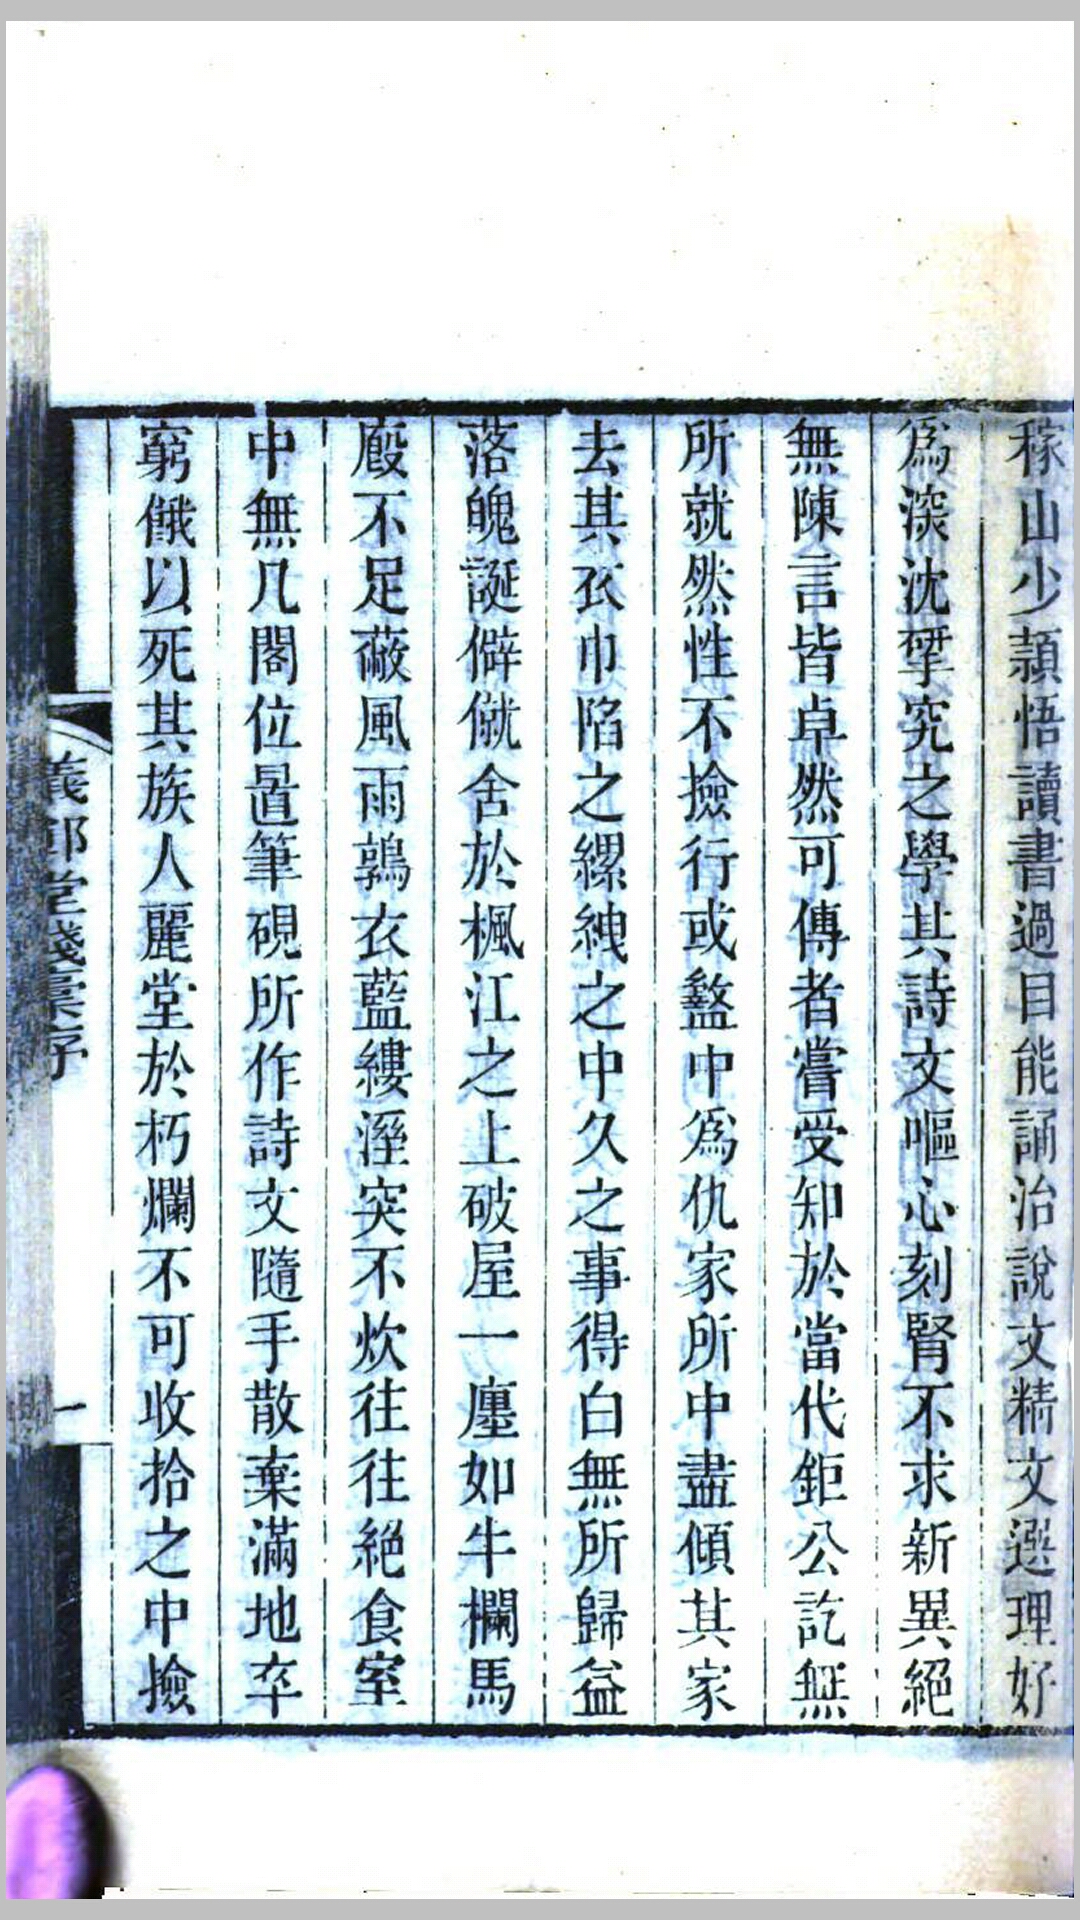 稼山少頴悟讀書過目能誦治說文精文選理好
爲深沈揅究之學其詩文嘔心刻腎不求新異絕
無陳言皆卓然可傳者嘗受知於當代鉅公訖無
所就然性不撿行或盭中爲仇家所中盡傾其家
去其衣巾陷之縲絏之中久之事得白無所歸益
落魄誕僻僦舍於楓江之上破屋一廛如牛欄馬
廄不足蔽風雨鶉衣藍縷溼突不炊往往絕食室
中無几閣位置筆硯所作詩文隨手散棄滿地卒
窮餓以死其族人麗堂於朽爛不可收拾之中撿
義鄉堂殘稾序
一